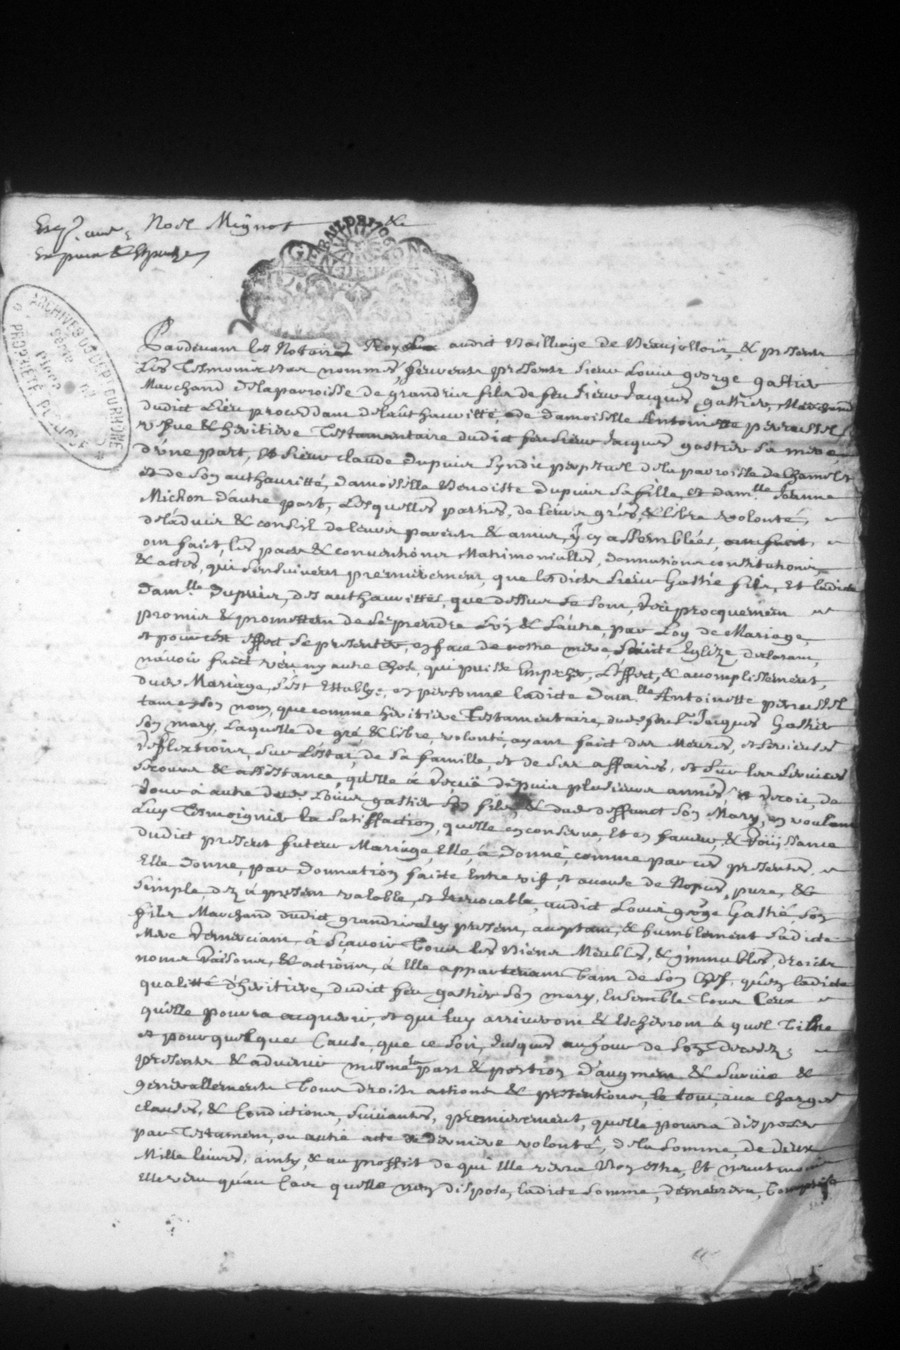 Noel Mignot
GEN DE LYON
ARCHIVES DU DEPT DU RHONE
PROPRIETE PUBLIQUE
Pardevant les Notaires Royaux audit Bailliage de Beaujollois, & presents
les Tesmoins bas nommés, feurent presents sieur Louis george gastier
Marchand de la parroisse de grandris fils de feu sieur Jacques gastier, Marchand
dudict Lieu procedant de l'authauritté, de damoiselle Antoinette perroussel
vefue & heritiere Testamentaire dudict feu sieur Jacques gastier sa mere
d'vne part, & sieur claude dupuis syndic perpetuel de la parroisse de Chamelet
et de son authauritté, damoiselle Benoitte dupuis sa fille, et dam.lle Jeanne
Michon d'autre part, Lesquelles parties, de leurs grés, & libre volonté,
de l'aduis & conseil de leurs parents & amis, Icy assemblés,
ont faict, les pactes & conventions Matrimonialles, donnations constitutions,
& actes, qui s'ensuiuent premierement, que ledict sieur Gastié fils, et ladicte
dam.lle Dupuis, des authaurittés, que dessus se sont, reciprocquement
promis & promettent de se prendre L'vn & L'autre, par Loy de Mariage,
et pour cet effect se presenter, en face de nostre mere, sainte Eglize declarant,
n'avoir faict rien, ny autre chose, qui puisse Empecher, L'effect, & accomplissement,
dudit Mariage, s'est Establye, en personne ladicte dam.lle Antoinette perroussel
tant en son nom, que comme heritiere Testamentaire, dudit feu s.r Jacques Gastier
son mary, Laquelle de gré & libre volonté, ayant faict des Meures, et serieuses
reflextions, sur L'estat, de sa famille, et de ses affaires, et sur les seruices
secours & assistance, qu'elle à receu depuis plusieurs années, et recoit, de
Jour à autre dudit Louis gastier son fils, & dudit deffunct son Mary, en voulant
Luy Tesmoigner la satisffaction, qu'elle en conserue, et en faueur, & Jouissance
dudict present futeur Mariage, Elle, à donné, comme par ces presentes,
Elle donne, par donnation faicte Entre vifs, et acause de Nopces, pure, &
simple, dez à present valable, et Irrevocable, audict Louis george Gastié, son
fils Marchand dudict grandris present, acceptant, & humblement sadicte
Mere remerciant, à sçavoir Tous les Biens Meubles, & immeubles, droicts
noms raisons, & actions, à Elle appartenants tant de son chef, qu'en ladicte
qualitté d'heritiere, dudict feu gastier son mary, Ensemble tous Ceux
qu'elle pourra acquerir, et qui Luy arriueront & Escherront à quel Tiltre
et pour quelque Cause, que ce soit, Jusques au Jour de son deces;
presents & aduenir mesme sa part & portion d'augment & suruie &
generallement Tous droicts actions & pretentions, le tout, aux Charges
clauses, & Conditions, suiuantes, premierement, qu'elle pourra disposer
par Testament, ou autre acte de derniere volonté, de la somme, de deux
Mille liures, ainsy, & au proffit de qui Elle verra Bon estre, Et neantmoins
Elle veut qu'au Cas qu'elle n'en dispose, ladicte somme, demeurera, Comprise